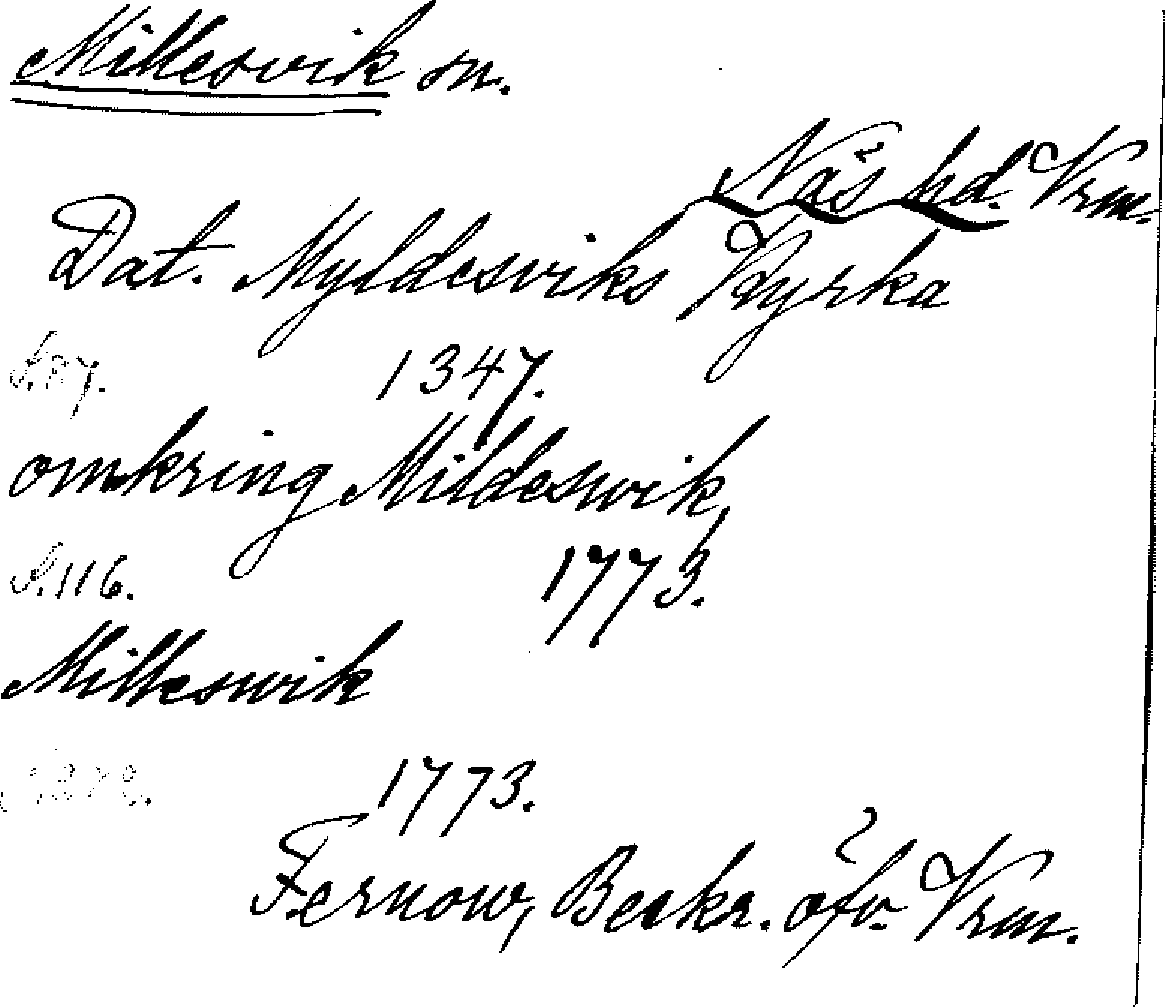 Millesvik sn.
Näs hd. Vrm.
Dat. Myldesviks Kyrka
S. 87. 1347.
omkring Mildeswik,
S. 116. 1773.
Milleswik
1773.
Fernow, Beskr. öfv. Vrm.